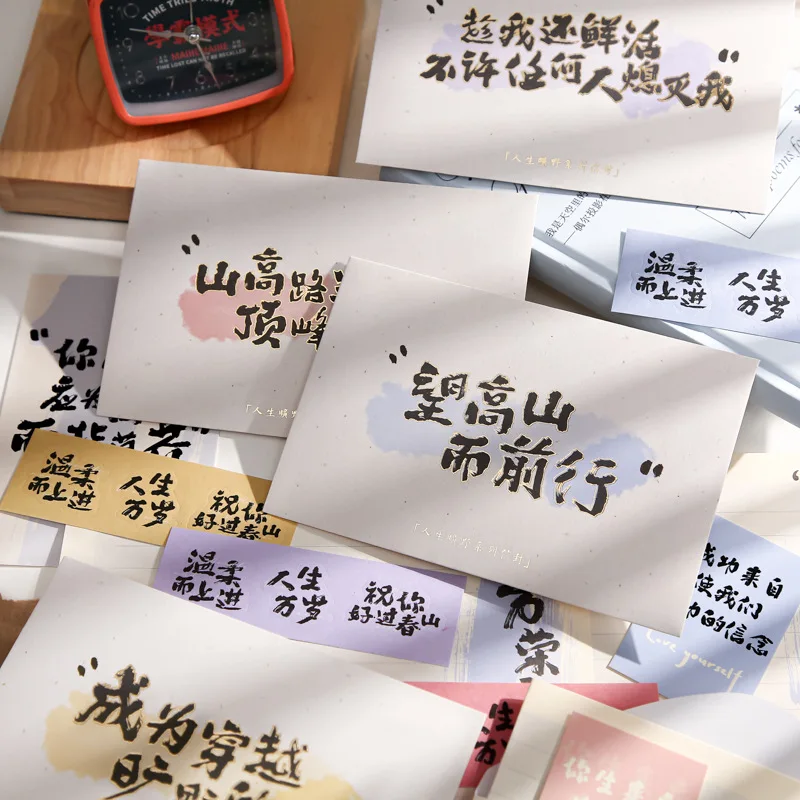 TIME TRIES TRUTH
學霸模式
TIME LOST CAN NOT BE RECALLED
趁我还鲜活
不许任何人熄灭我"
「人生旷野系列信封」
我是天空里的
——偶尔投影在
温柔
而上进
人生
万岁
"山高路
顶峰
「人生旷野
"望高山
而前行"
「人生旷野系列信封」
"你
温柔
而上进
人生
万岁
祝你
好过春山
温柔
而上进
人生
万岁
祝你
好过春山
成功来自
使我们
力的信念
Love yourself
万
荣
"成为穿越
旷野的
生
万
你生来